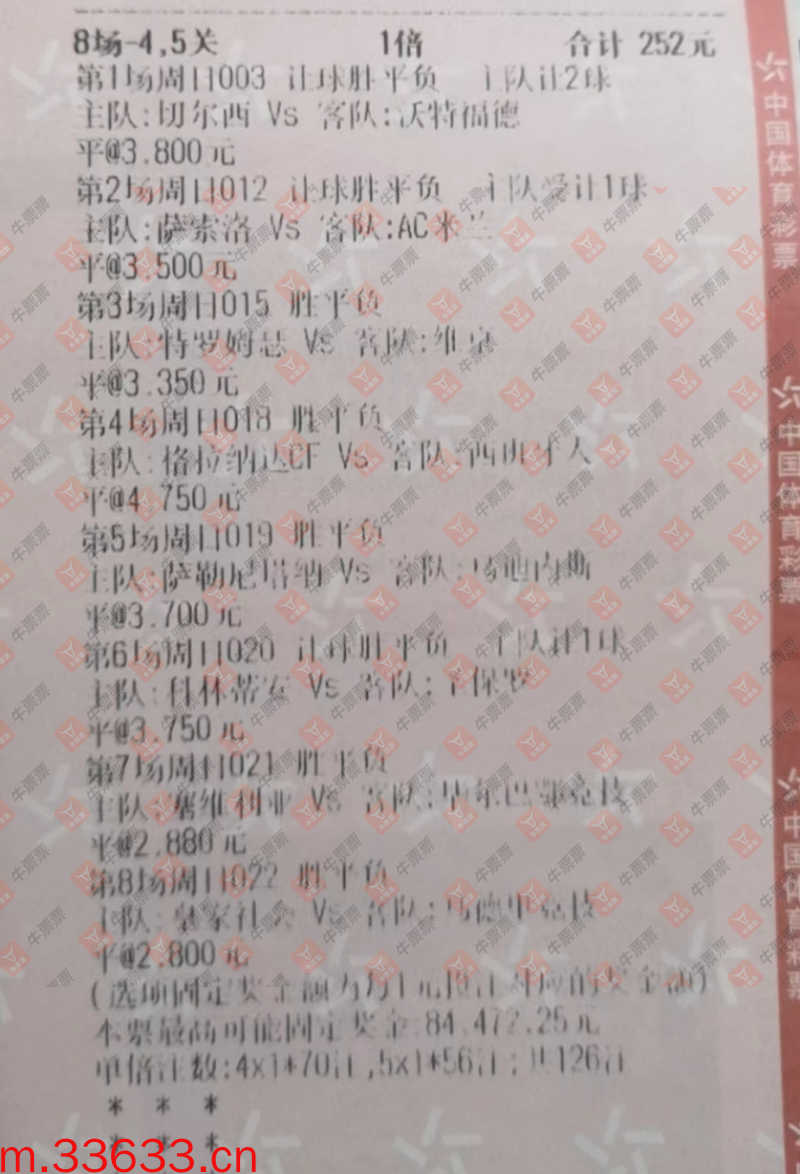 8场-4,5关 1倍 合计 252元
第1场周日003 让球胜平负 主队让2球
主队:切尔西 Vs 客队:沃特福德
平@3.800元
第2场周日012 让球胜平负 主队受让1球
主队:萨索洛 Vs 客队:AC米兰
平@3.500元
第3场周日015 胜平负
主队:特罗姆瑟 Vs 客队:维京
平@3.350元
第4场周日018 胜平负
主队:格拉纳达CF Vs 客队:西班牙人
平@4.750元
第5场周日019 胜平负
主队:萨勒尼塔纳 Vs 客队:乌迪内斯
平@3.700元
第6场周日020 让球胜平负 主队让1球
主队:科林蒂安 Vs 客队:圣保罗
平@3.750元
第7场周日021 胜平负
主队:塞维利亚 Vs 客队:毕尔巴鄂竞技
平@2.880元
第8场周日022 胜平负
主队:皇家社会 Vs 客队:马德里竞技
平@2.800元
(选项固定奖金额为每1元投注对应的奖金额)
本票最高可能固定奖金:84,472.25元
单倍注数:4x1*70注,5x1*56注;共126注
* * *
* * *
中国体育彩票
中国体育彩票
中国体育彩票
牛票票
m.33633.cn